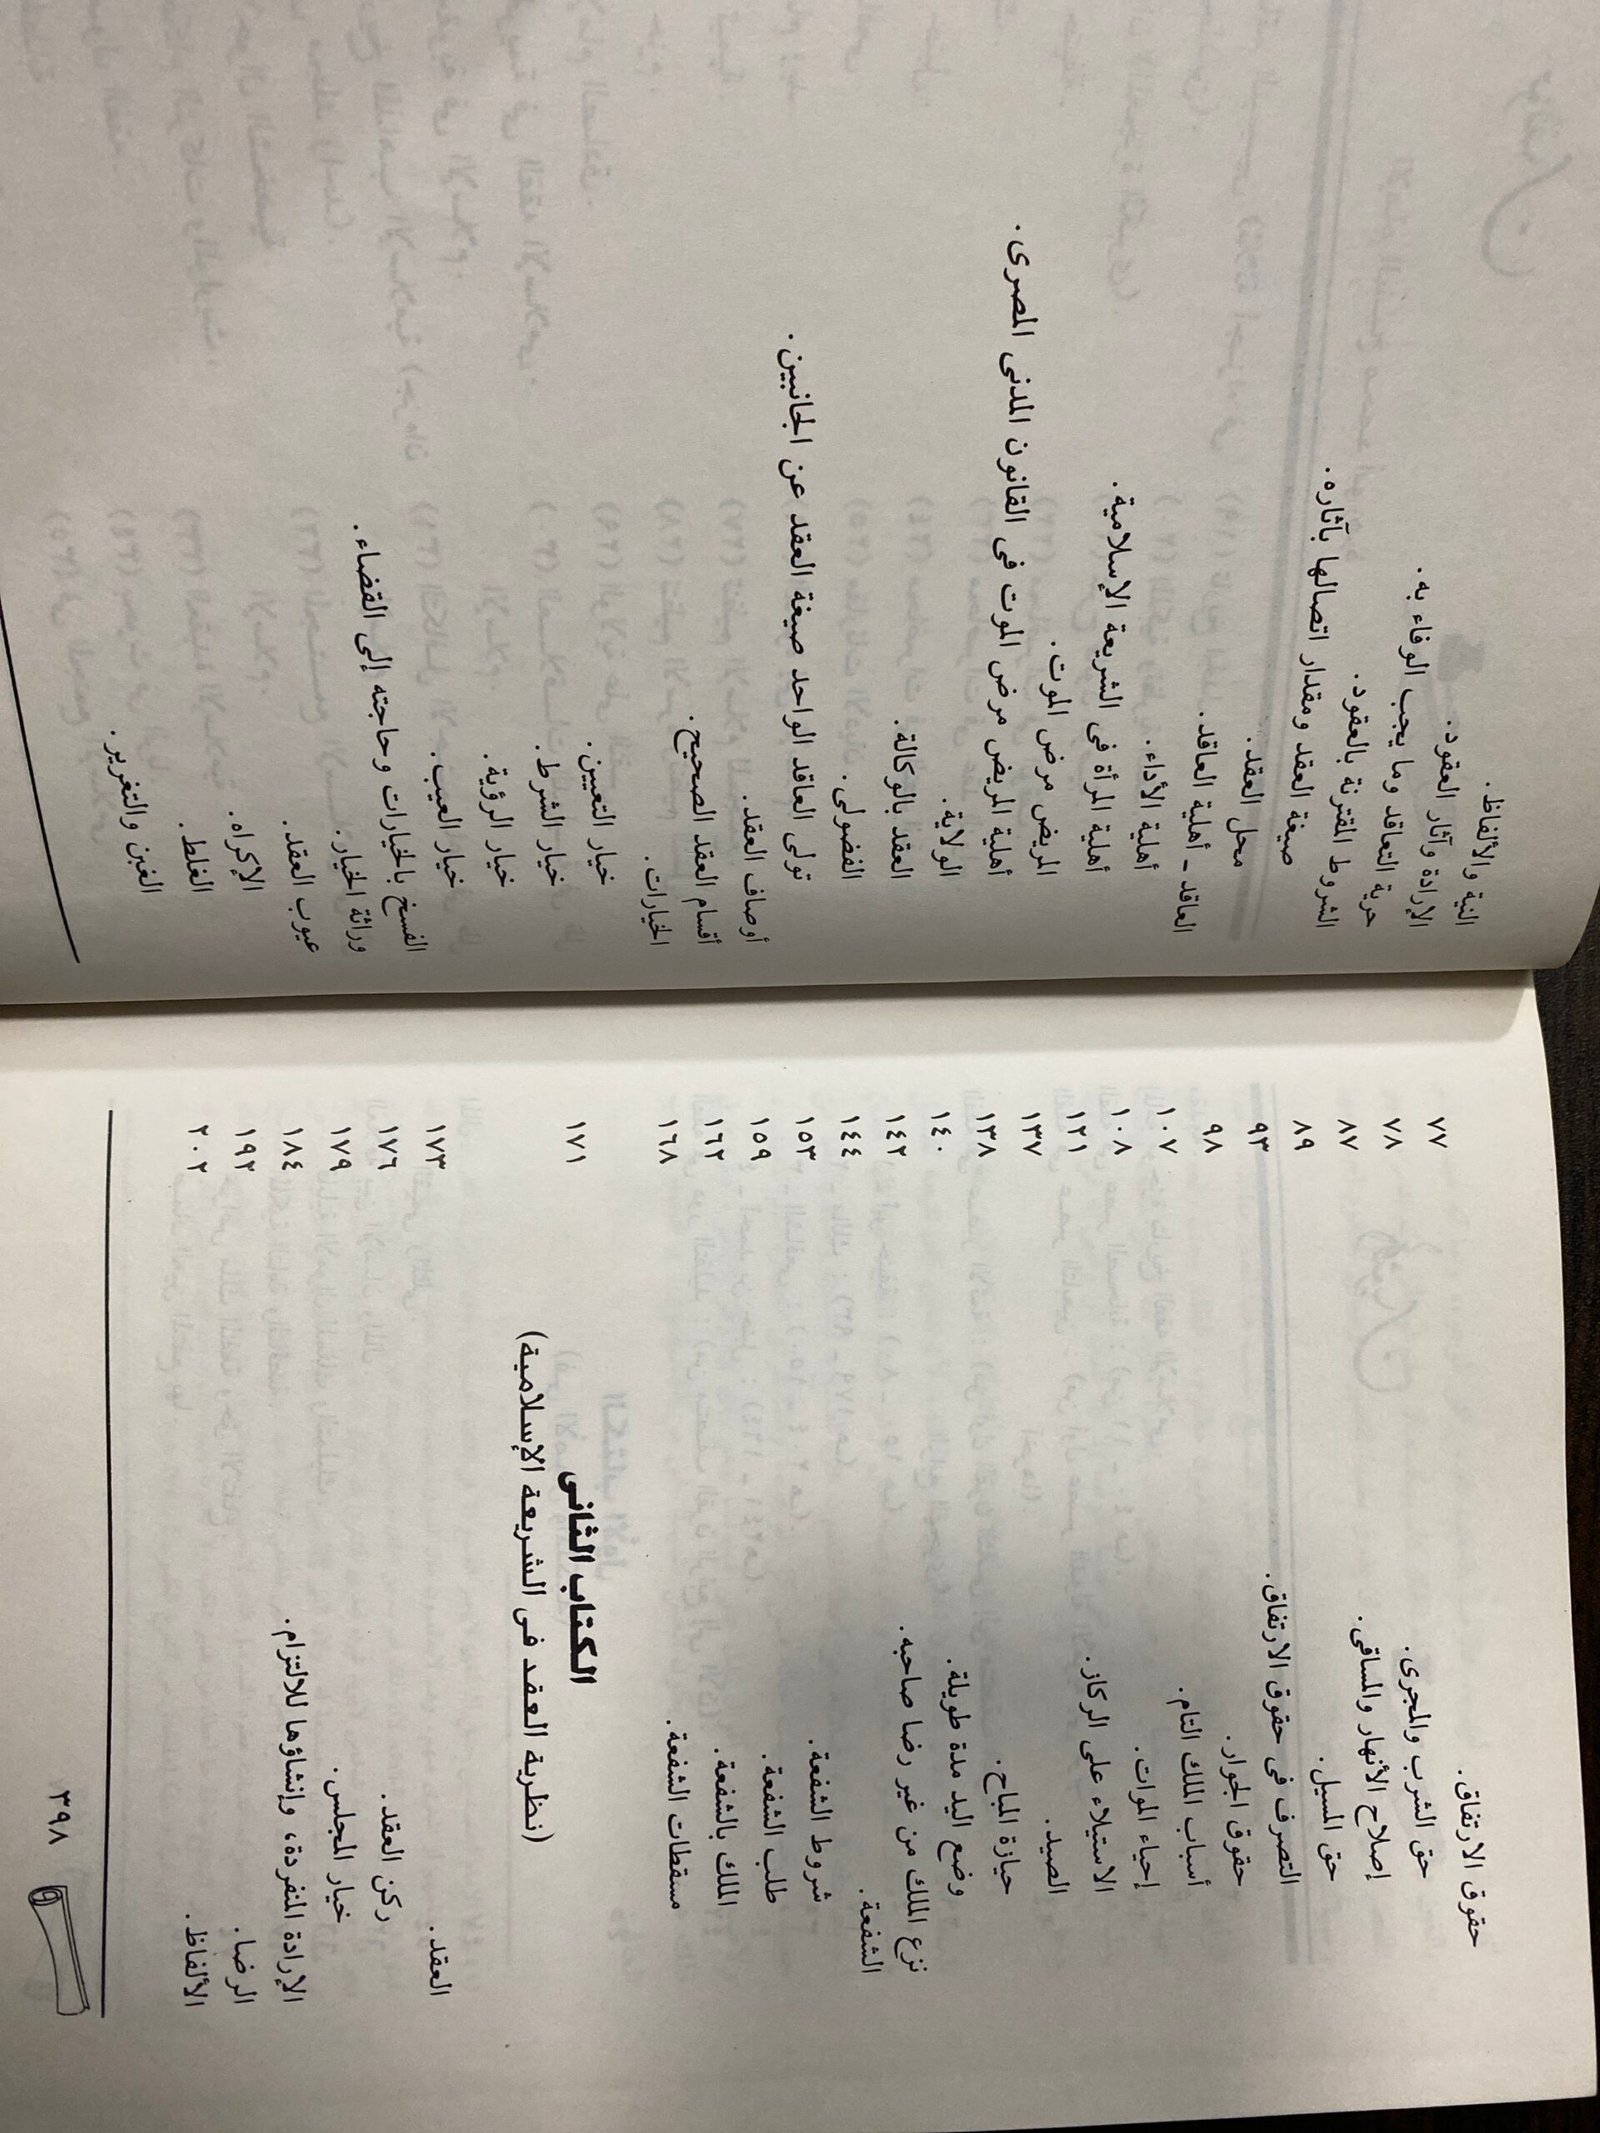 حقوق الارتفاق. ٧٧
حق الشرب والمجرى. ٧٨
إصلاح الأنهار والمساقى. ٨٧
حق المسيل. ٨٩
التصرف فى حقوق الارتفاق. ٩٣
حقوق الجوار. ٩٨
أسباب الملك التام. ١٠٧
إحياء الموات. ١٠٨
الاستيلاء على الركاز. ١٢١
الصيد. ١٣٧
حيازة المباح. ١٣٨
وضع اليد مدة طويلة. ١٤٠
نزع الملك من غير رضا صاحبه. ١٤٢
الشفعة. ١٤٤
شروط الشفعة. ١٥٣
طلب الشفعة. ١٥٩
الملك بالشفعة. ١٦٢
مسقطات الشفعة. ١٦٨
الكتاب الثانى ١٧١
(نظرية العقد فى الشريعة الإسلامية)
العقد. ١٧٣
ركن العقد. ١٧٦
خيار المجلس. ١٧٩
الإرادة المنفردة، وإنشاؤها للالتزام. ١٨٤
الرضا. ١٩٢
الألفاظ. ٢٠٢
٣٩٨
النية والألفاظ.
الإرادة وآثار العقود.
حرية التعاقد وما يجب الوفاء به.
الشروط المقترنة بالعقود.
صيغة العقد ومقدار اتصالها بآثاره.
محل العقد.
العاقد - أهلية العاقد.
أهلية الأداء.
أهلية المرأة فى الشريعة الإسلامية.
المريض مرض الموت.
أهلية المريض مرض الموت فى القانون المدنى المصرى.
الولاية.
العقد بالوكالة.
الفضولى.
تولى العاقد الواحد صيغة العقد عن الجانبين.
أوصاف العقد.
أقسام العقد الصحيح.
الخيارات.
خيار التعيين.
خيار الشرط.
خيار الرؤية.
خيار العيب.
الفسخ بالخيارات وحاجته إلى القضاء.
وراثة الخيار.
عيوب العقد.
الإكراه.
الغلط.
الغبن والتغرير.